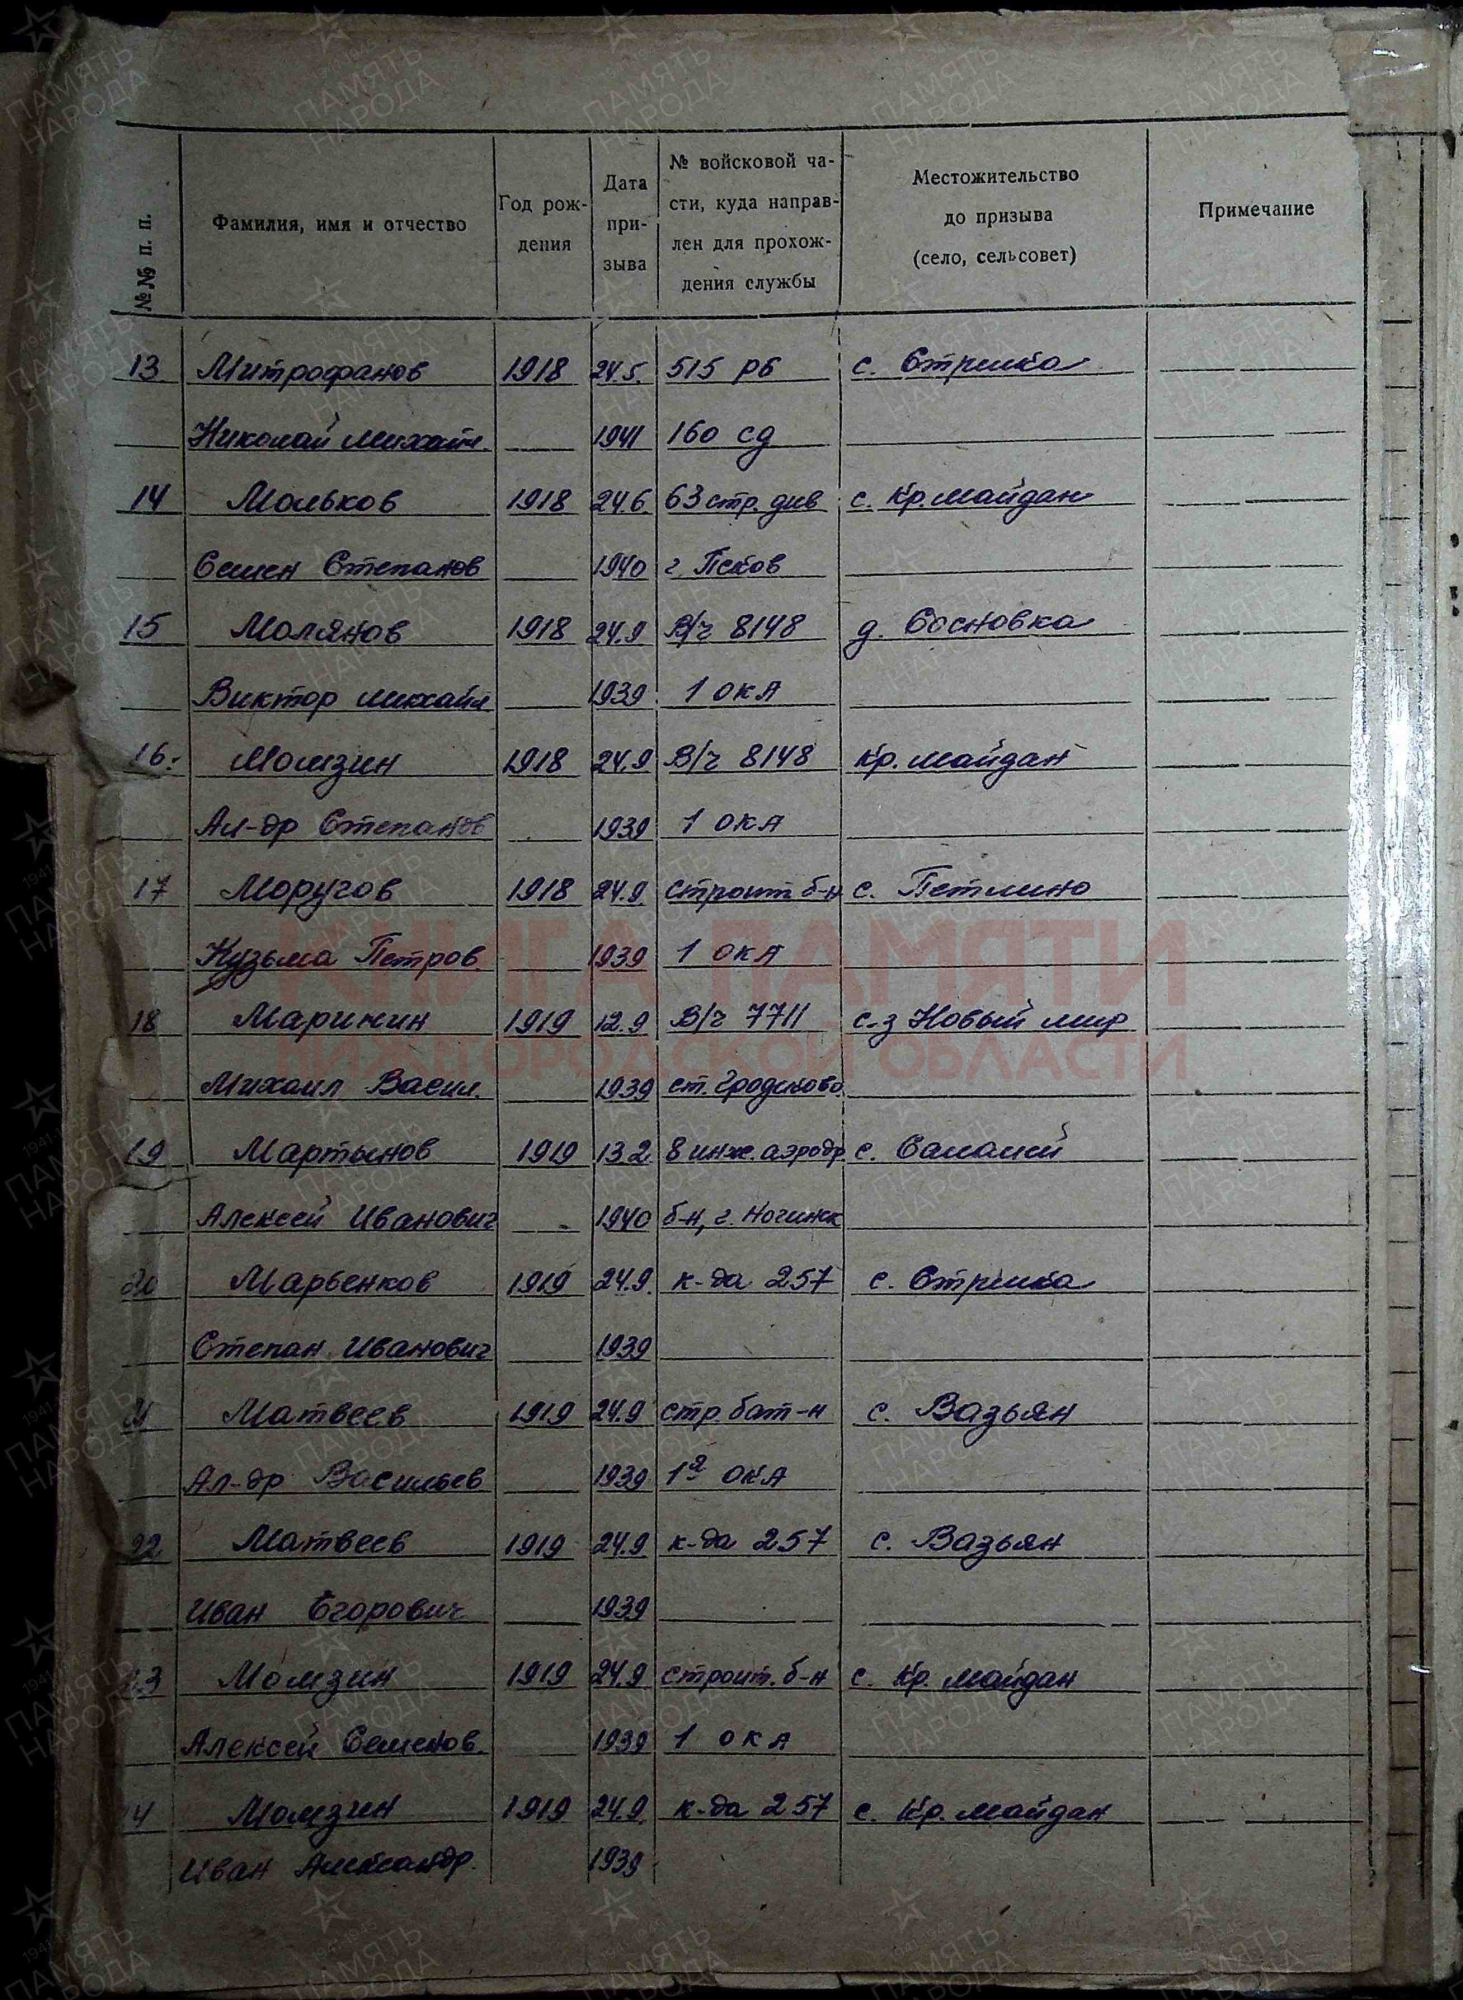 №№ п. п. | Фамилия, имя и отчество | Год рож-дения | Дата при-зыва | № войсковой ча-сти, куда направ-лен для прохож-дения службы | Местожительство до призыва (село, сельсовет) | Примечание
13 Митрофанов 1918 24.5. 515 рб с. Стрелка
Николай Михайл. 1941 160 сд
14 Мольков 1918 24.6. 63 стр. див с. Кр. Майдан
Семен Степанов 1940 г. Псков
15 Молянов 1918 24.9 В/ч 8148 д. Сосновка
Виктор Михайл 1939 1 ОКА
16. Момзин 1918 24.9 В/ч 8148 Кр. Майдан
Ал-др Степанов 1939 1 ОКА
17 Моругов 1918 24.9. строит. б-н с. Петлино
Кузьма Петров. 1939 1 ОКА
18 Маринин 1919 12.9 В/ч 7711 с-з Новый мир
Михаил Васил. 1939 ст. Гродеково
19 Мартынов 1919 13.2. 8 инж. аэродр. с. Салалей
Алексей Иванович 1940 б-н, г. Ногинск
20 Марьенков 1919 24.9. к-да 257 с. Стрелка
Степан Иванович 1939
21 Матвеев 1919 24.9 стр. бат-н с. Вазьян
Ал-др Васильев 1939 1я ОКА
22 Матвеев 1919 24.9 к-да 257 с. Вазьян
Иван Егорович 1939
23 Момзин 1919 24.9 строит. б-н с. Кр. Майдан
Алексей Семенов. 1939 1 ОКА
4 Момзин 1919 24.9. к-да 257 с. Кр. Майдан
Иван Александр. 1939
КНИГА ПАМЯТИ
НИЖЕГОРОДСКОЙ ОБЛАСТИ
ПАМЯТЬ НАРОДА